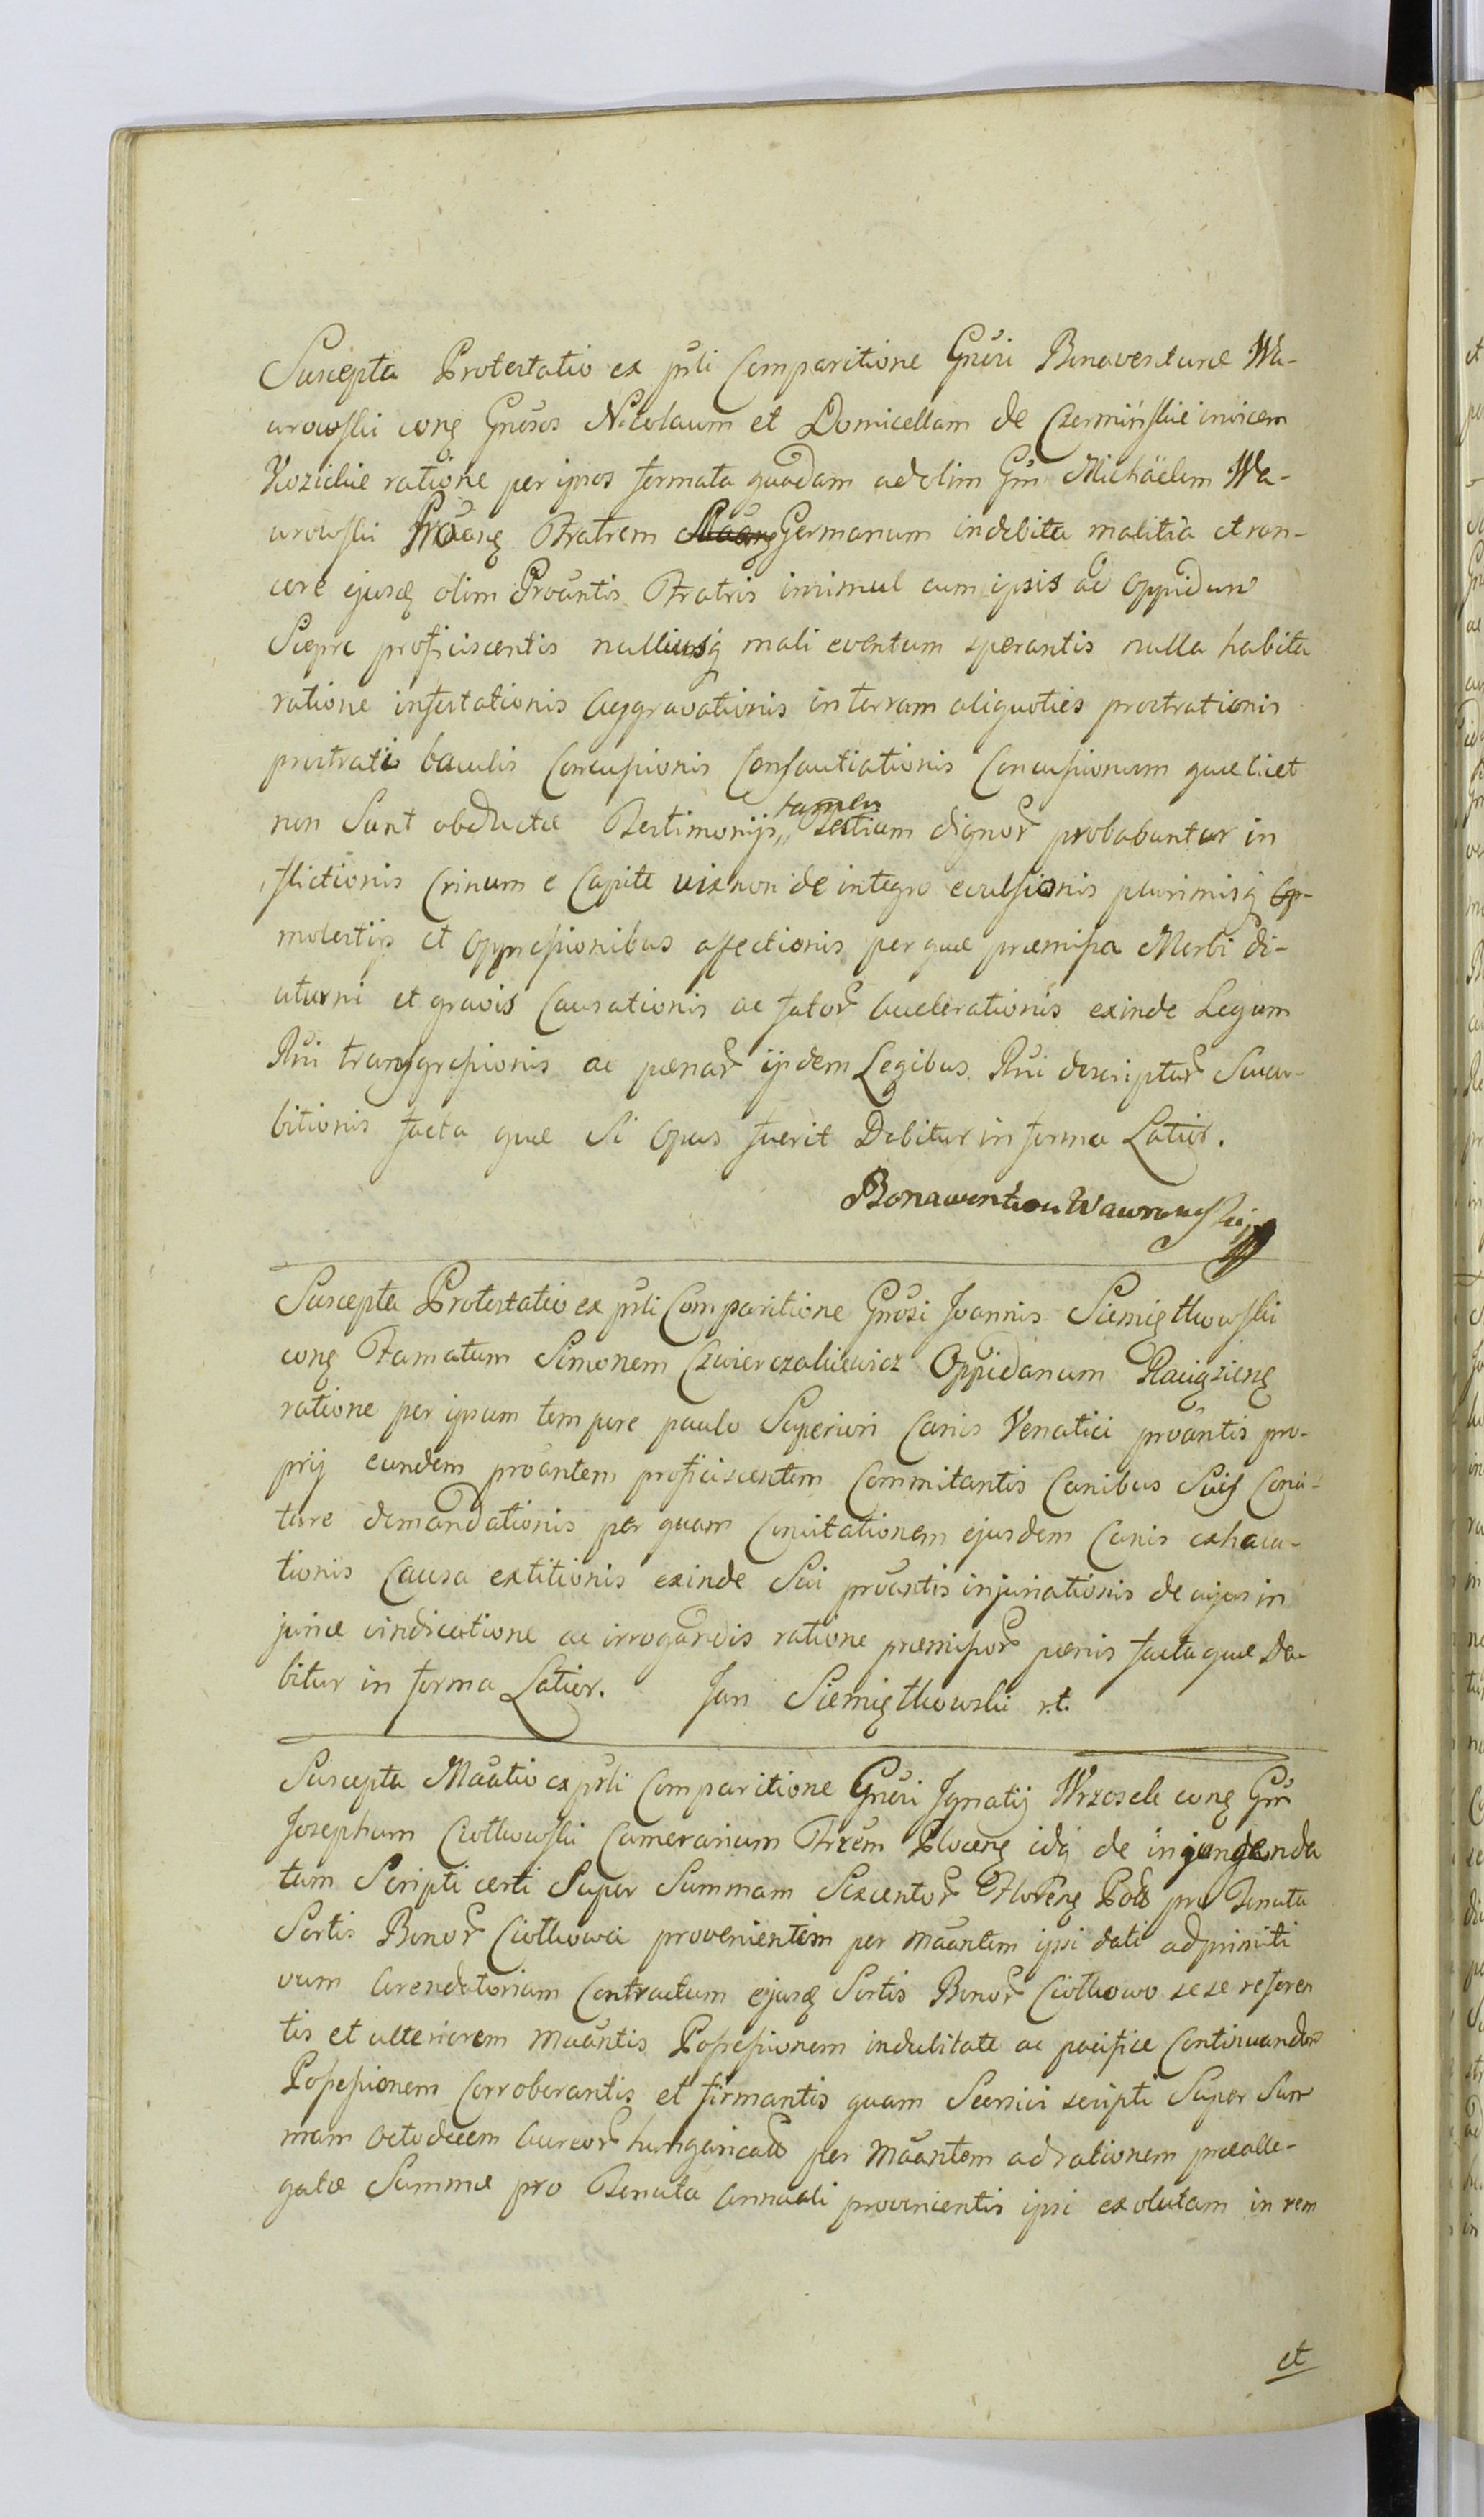 Suscepta Protestatio ex pñti Comparitione Gnõsi Bonaventuræ Wa-
wrowski conq̃ Gnõsos Nicolaum et Domicellam de Czermińskie invicem
Kozickie ratione per ipsos formata quadam ad olim Gm̃ Michäelem Wa-
wrowski Prõang Fratrem Germanum indebita malitia et ran-
core ejusq̃ olim Proãntis Fratris insimul cum ipsis ad Oppidum
Sieprc proficiscentis nulliusq̃ mali eventum sperantis nulla habita
ratione infestationis Aggravationis in terram aliquoties prostrationis
prostrati baculis Concussionis Consautiationis Concussionum quæ licet
non Sunt obductæ Testimonijs tamen testium dignor̃ probabuntur in
flictionis Crinum e Capite vix non de integro evulsionis plurimisq̃
molestijs et Oppressionibus affectionis per quæ præmissa Morbi di-
uturni et gravis Causationis ac fator̃ Accelerationis exinde Legum
Rñi transgressionis ac pænar̃ ijsdem Legibus Rñi descriptar̃ Succu-
bitionis facta quæ Si Opus fuerit Dabitur in forma Latior.
Bonawentura Wawrowski
Suscepta Protestatio ex pñti Comparitione Gnõsi Joannis Siemiętkowski
conq̃ Famatum Simonem Cwierczakiewicz Oppidanum Raciązieng
ratione per ipsum tempore paulo Superiori Canis Venatici proãntis pro-
prij eundem proãntem proficiscentem Commitantis Canibus Suis Conci-
tare demandationis per quam Concitationem ejusdem Canis exhaca-
tionis Causa extitionis exinde Sui proãntis injuriationis de cujus in
juriæ vindicatione ac irrogandis ratione præmissor̃ pænis facta quæ Da-
bitur in forma Latior. Jan Siemiętkowski r.t.
Suscepta Mãatio ex pñti Comparitione Gnõsi Ignatij Wrzosek conq̃ Gm̃
Josephum Ciotkowski Camerarium Trrẽm Plocenq̃ idq̃ de injungenda
tum Scripti certi Super Summam Sexcentor̃ Floreng Poll pro Tenuta
Sortis Bonor̃ Ciotkowa provenientem per Mãantem ipsi dati ad primiti
vum Arendatorium Contractum ejusq̃ Sortis Bonor̃ Ciotkowo sese referen
tis et ulteriorem Mãantis Possessionem indubitate ac pacifice Continuandam
Possessionem Corroborantis et firmantis quam Secusivi scripti Super Sum
mam Octodecem Aureor̃ hungaricall per Mãantem ad rationem præalle-
gatæ Summæ pro Tenuta Annuali provenientis ipsi exolutam in rem
et